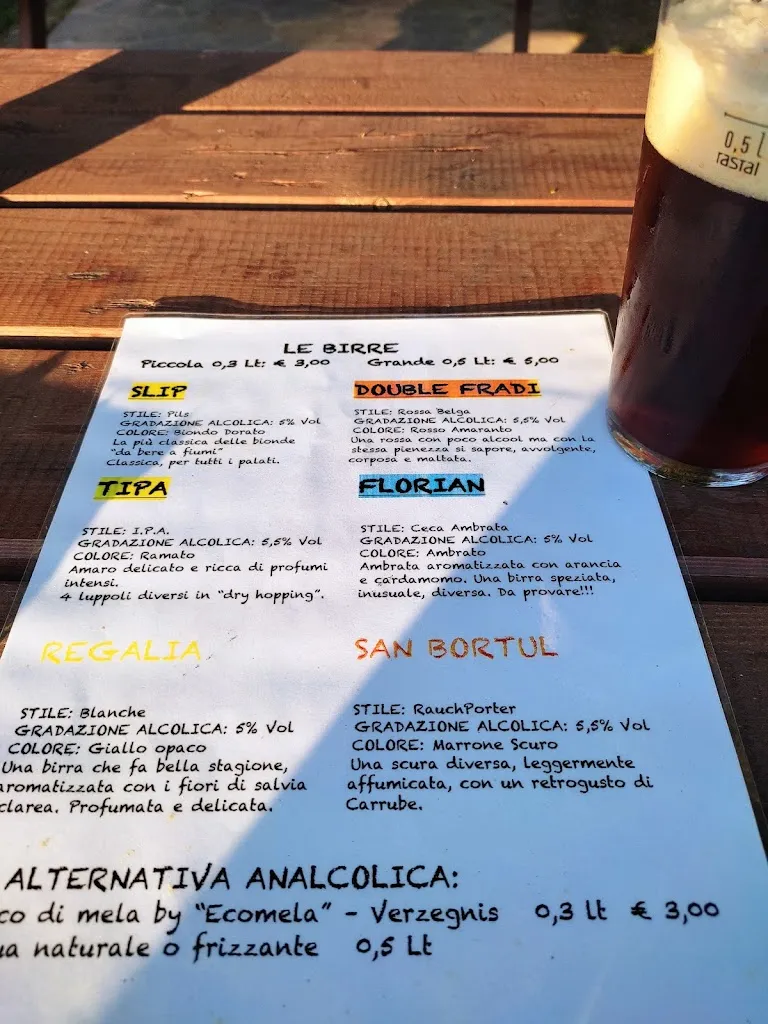 0,5 l
rastal
LE BIRRE
Piccola 0,3 Lt: € 3,00 Grande 0,5 Lt: € 5,00
SLIP
STILE: Pils
GRADAZIONE ALCOLICA: 5% Vol
COLORE: Biondo Dorato
La più classica delle bionde
"da bere a fiumi"
Classica, per tutti i palati.
DOUBLE FRADI
STILE: Rossa Belga
GRADAZIONE ALCOLICA: 5,5% Vol
COLORE: Rosso Amaranto
Una rossa con poco alcool ma con la
stessa pienezza si sapore, avvolgente,
corposa e maltata.
TIPA
STILE: I.P.A.
GRADAZIONE ALCOLICA: 5,5% Vol
COLORE: Ramato
Amaro delicato e ricca di profumi
intensi.
4 luppoli diversi in "dry hopping".
FLORIAN
STILE: Ceca Ambrata
GRADAZIONE ALCOLICA: 5% Vol
COLORE: Ambrato
Ambrata aromatizzata con arancia
e cardamomo. Una birra speziata,
inusuale, diversa. Da provare!!!
REGALIA
STILE: Blanche
GRADAZIONE ALCOLICA: 5% Vol
COLORE: Giallo opaco
Una birra che fa bella stagione,
aromatizzata con i fiori di salvia
clarea. Profumata e delicata.
SAN BORTUL
STILE: RauchPorter
GRADAZIONE ALCOLICA: 5,5% Vol
COLORE: Marrone Scuro
Una scura diversa, leggermente
affumicata, con un retrogusto di
Carrube.
ALTERNATIVA ANALCOLICA:
co di mela by "Ecomela" - Verzegnis 0,3 lt € 3,00
ua naturale o frizzante 0,5 Lt